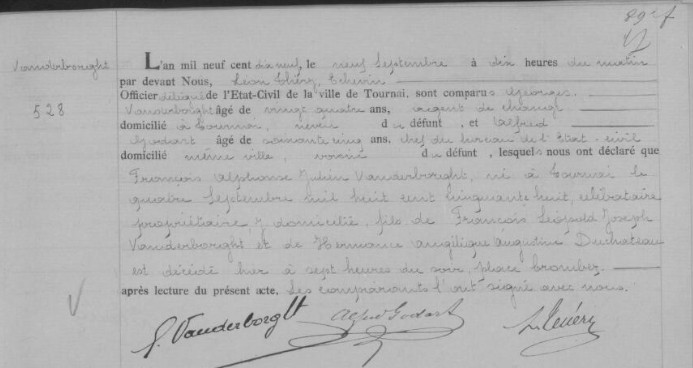 Vanderborght
528
L'an mil neuf cent dix neuf, le neuf Septembre à dix heures du matin
par devant Nous, Léon Théry, Echevin
Officier délégué de l'Etat-Civil de la ville de Tournai, sont comparus Georges
Vanderborght âgé de vingt quatre ans, agent de change
domicilié à Tournai, neveu du défunt, et Alfred
Godart âgé de soixante cinq ans, chef du bureau de l'Etat-civil
domicilié même ville, voisin du défunt, lesquels nous ont déclaré que
François Alphonse Julien Vanderborght, né à Tournai le
quatre Septembre mil huit cent cinquante huit, célibataire
propriétaire y domicilié, fils de François Léopold Joseph
Vanderborght et de Hermance Angélique Augustine Duchateau
est décédé hier à sept heures du soir, place Crombez.
après lecture du présent acte, Les comparants l'ont signé avec nous.
G. Vanderborght Alfred Godart